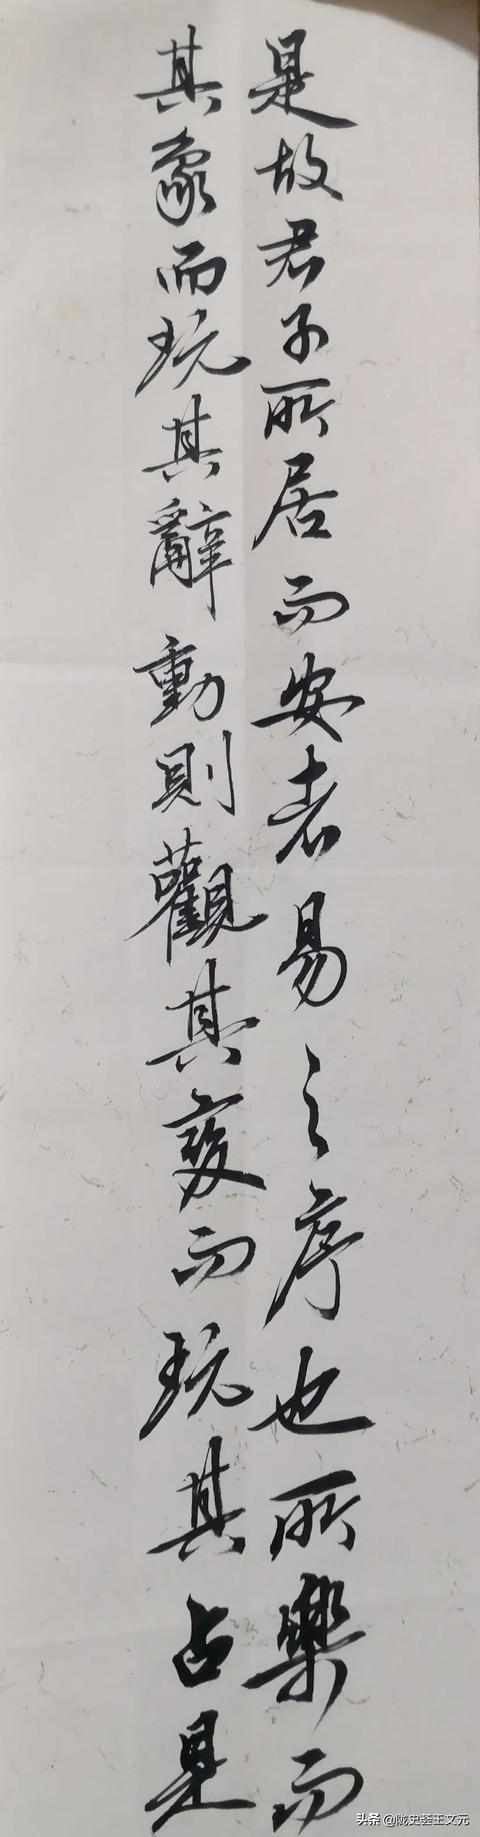 是故君子所居而安者易之序也所樂而
其象而玩其辭動則觀其變而玩其占是
头条 @陇史荟王文元